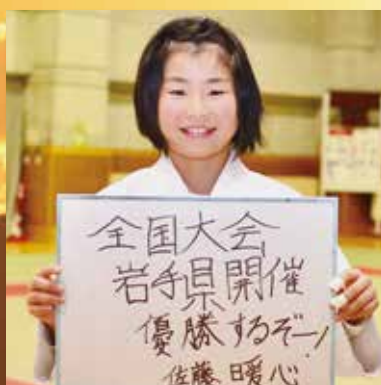 全国大会
岩手県開催
優勝するぞー!
佐藤 暖心